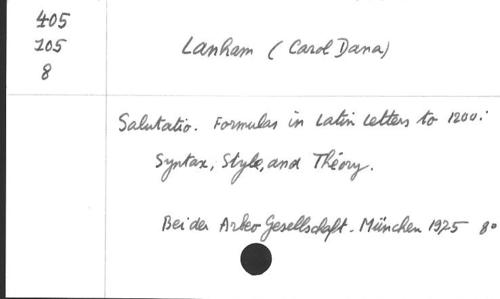 405
105
8
Lanham (Carol Dana)
Salutatio. Formulas in Latin Letters to 1200:
Syntax, Style, and Théory.
Bei der Arbeo Gesellschaft. München 1975 8°